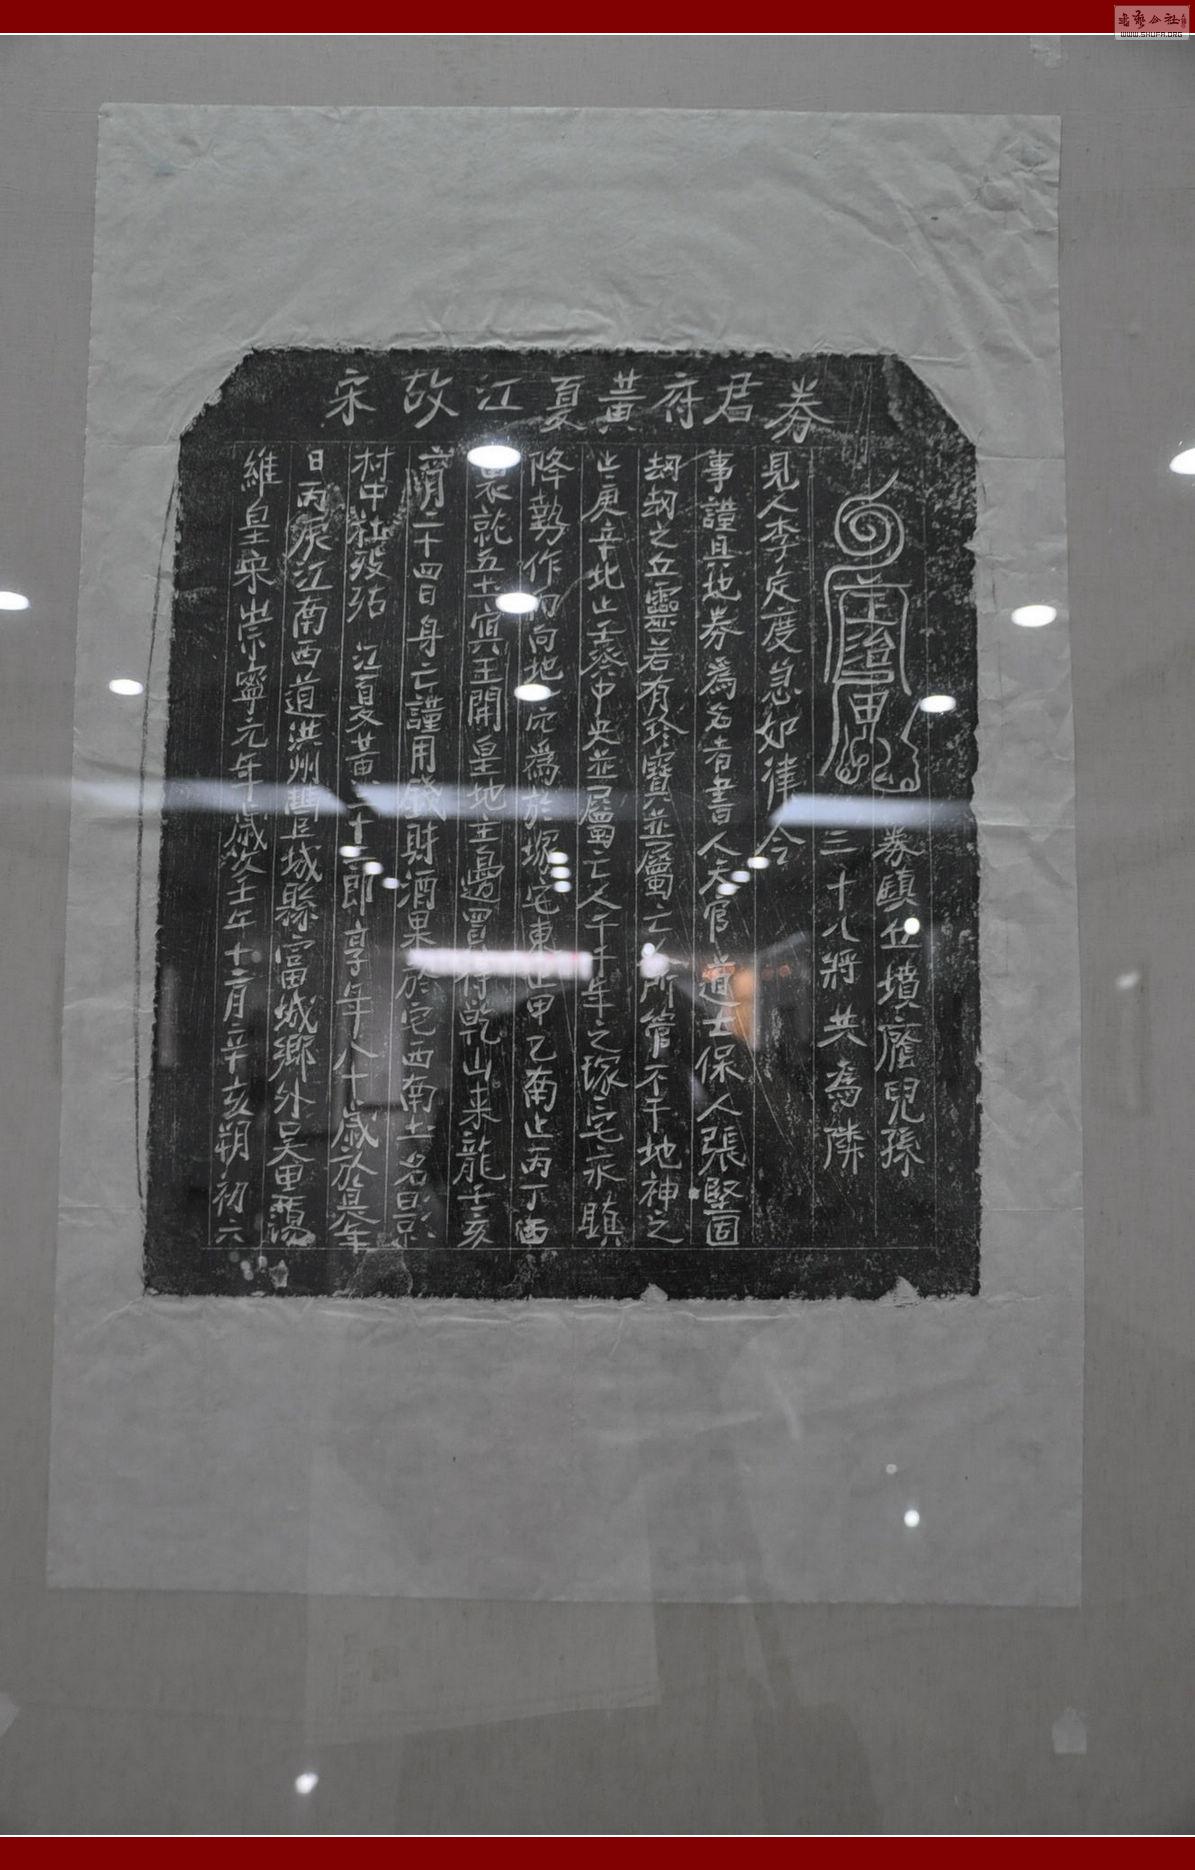 宋故江夏黃府君券
維皇宋崇寧元年歲次壬午十二月辛亥朔初六
日丙辰江南西道洪州豐城縣富城鄉外吳里
村中社歿故江夏黃二十郎享年八十歲於
二十四日身亡謹用錢財酒果於宅西南土名
就五土冥王開皇地主邊買得乾山来龍壬亥
降勢作向地穴為於塚宅東止甲乙南止丙丁西
止庚辛北止壬癸中央並屬亡人千千年之塚宅永
刼刼之丘靈若有珍寶並屬亡人所管不干地神之
事謹具地券為名者書人天官道士保人張堅固
見人李定度急如律令
三十八將共為隣
券丘墳廕兒孫
WWW.SHUFA.ORG